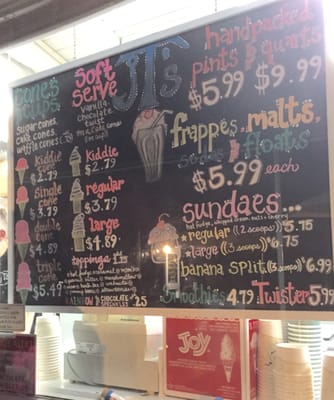 JT's
cones
cups
sugar cones,
cake cones,
waffle cones,
kiddie
cone
$2.79
single
cone
$3.79
double
cone
$4.89
triple
$5.79
soft
serve
vanilla,
chocolate
twist
kiddie
$2.79
regular
$3.79
large
$4.89
toppings
RAINBOW & CHOCOLATE
.25
handpacked
pints & quarts
$5.99 $9.99
frappés, malts,
sodas & floats
$5.99 each
sundaes...
hot fudge, whipped cream, nuts + cherry
*regular ((2 scoops)) 5.75
*large ((3 scoops)) 6.75
banana split ((3 scoops)) 6.99
Smoothies 4.79 Twister 5.99
JOY